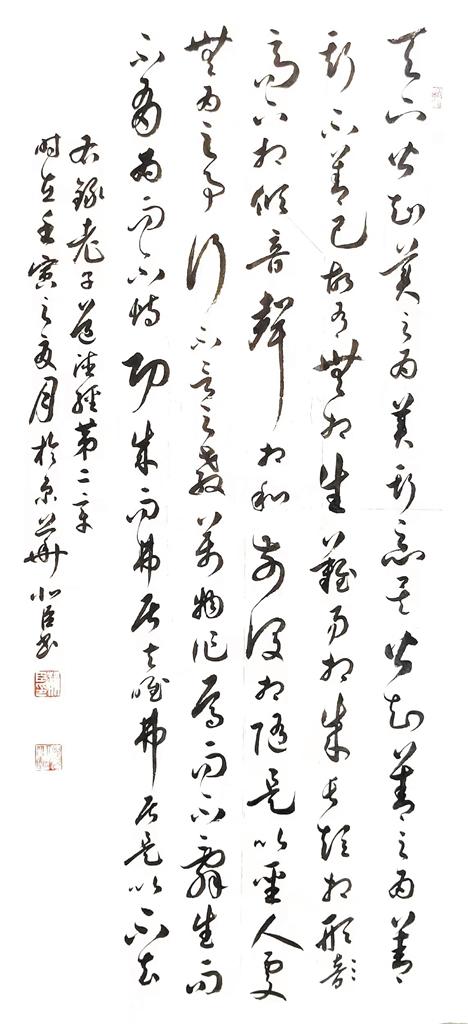 天下皆知美之為美斯惡皆知善之為善
斯不善已故有無相生難易相成長短相形
高下相傾音聲相和前後相隨是以聖人處
無為之事行不言之教萬物作焉而不辭生而
不有為而不恃功成而弗居夫唯弗居是以不去
右錄老子道德經第二章
時在壬寅之夏月於京華臣書